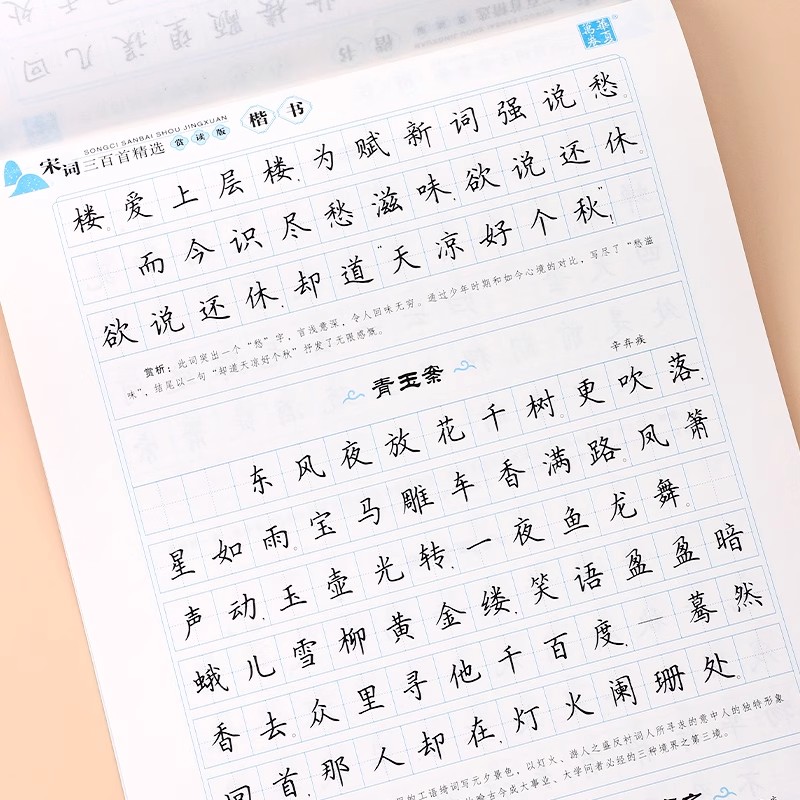 华夏万卷
SONGCI SANBAI SHOU JINGXUAN
宋词三百首精选 赏读版 楷书
楼。爱上层楼,为赋新词强说愁。
而今识尽愁滋味,欲说还休。
欲说还休,却道“天凉好个秋”!
赏析:此词突出一个“愁”字,言浅意深,令人回味无穷。通过少年时期和如今心境的对比,写尽了“愁滋
味”,结尾以一句“却道天凉好个秋”抒发了无限感慨。
青玉案
辛弃疾
东风夜放花千树。更吹落,
星如雨。宝马雕车香满路。凤箫
声动,玉壶光转,一夜鱼龙舞。
蛾儿雪柳黄金缕,笑语盈盈暗
香去。众里寻他千百度,蓦然
回首,那人却在,灯火阑珊处。
的工语绮词写元夕景色,以灯火、游人之盛反衬词人所寻求的意中人的独特形象
古今成大事业、大学问者必经的三种境界之第三境。